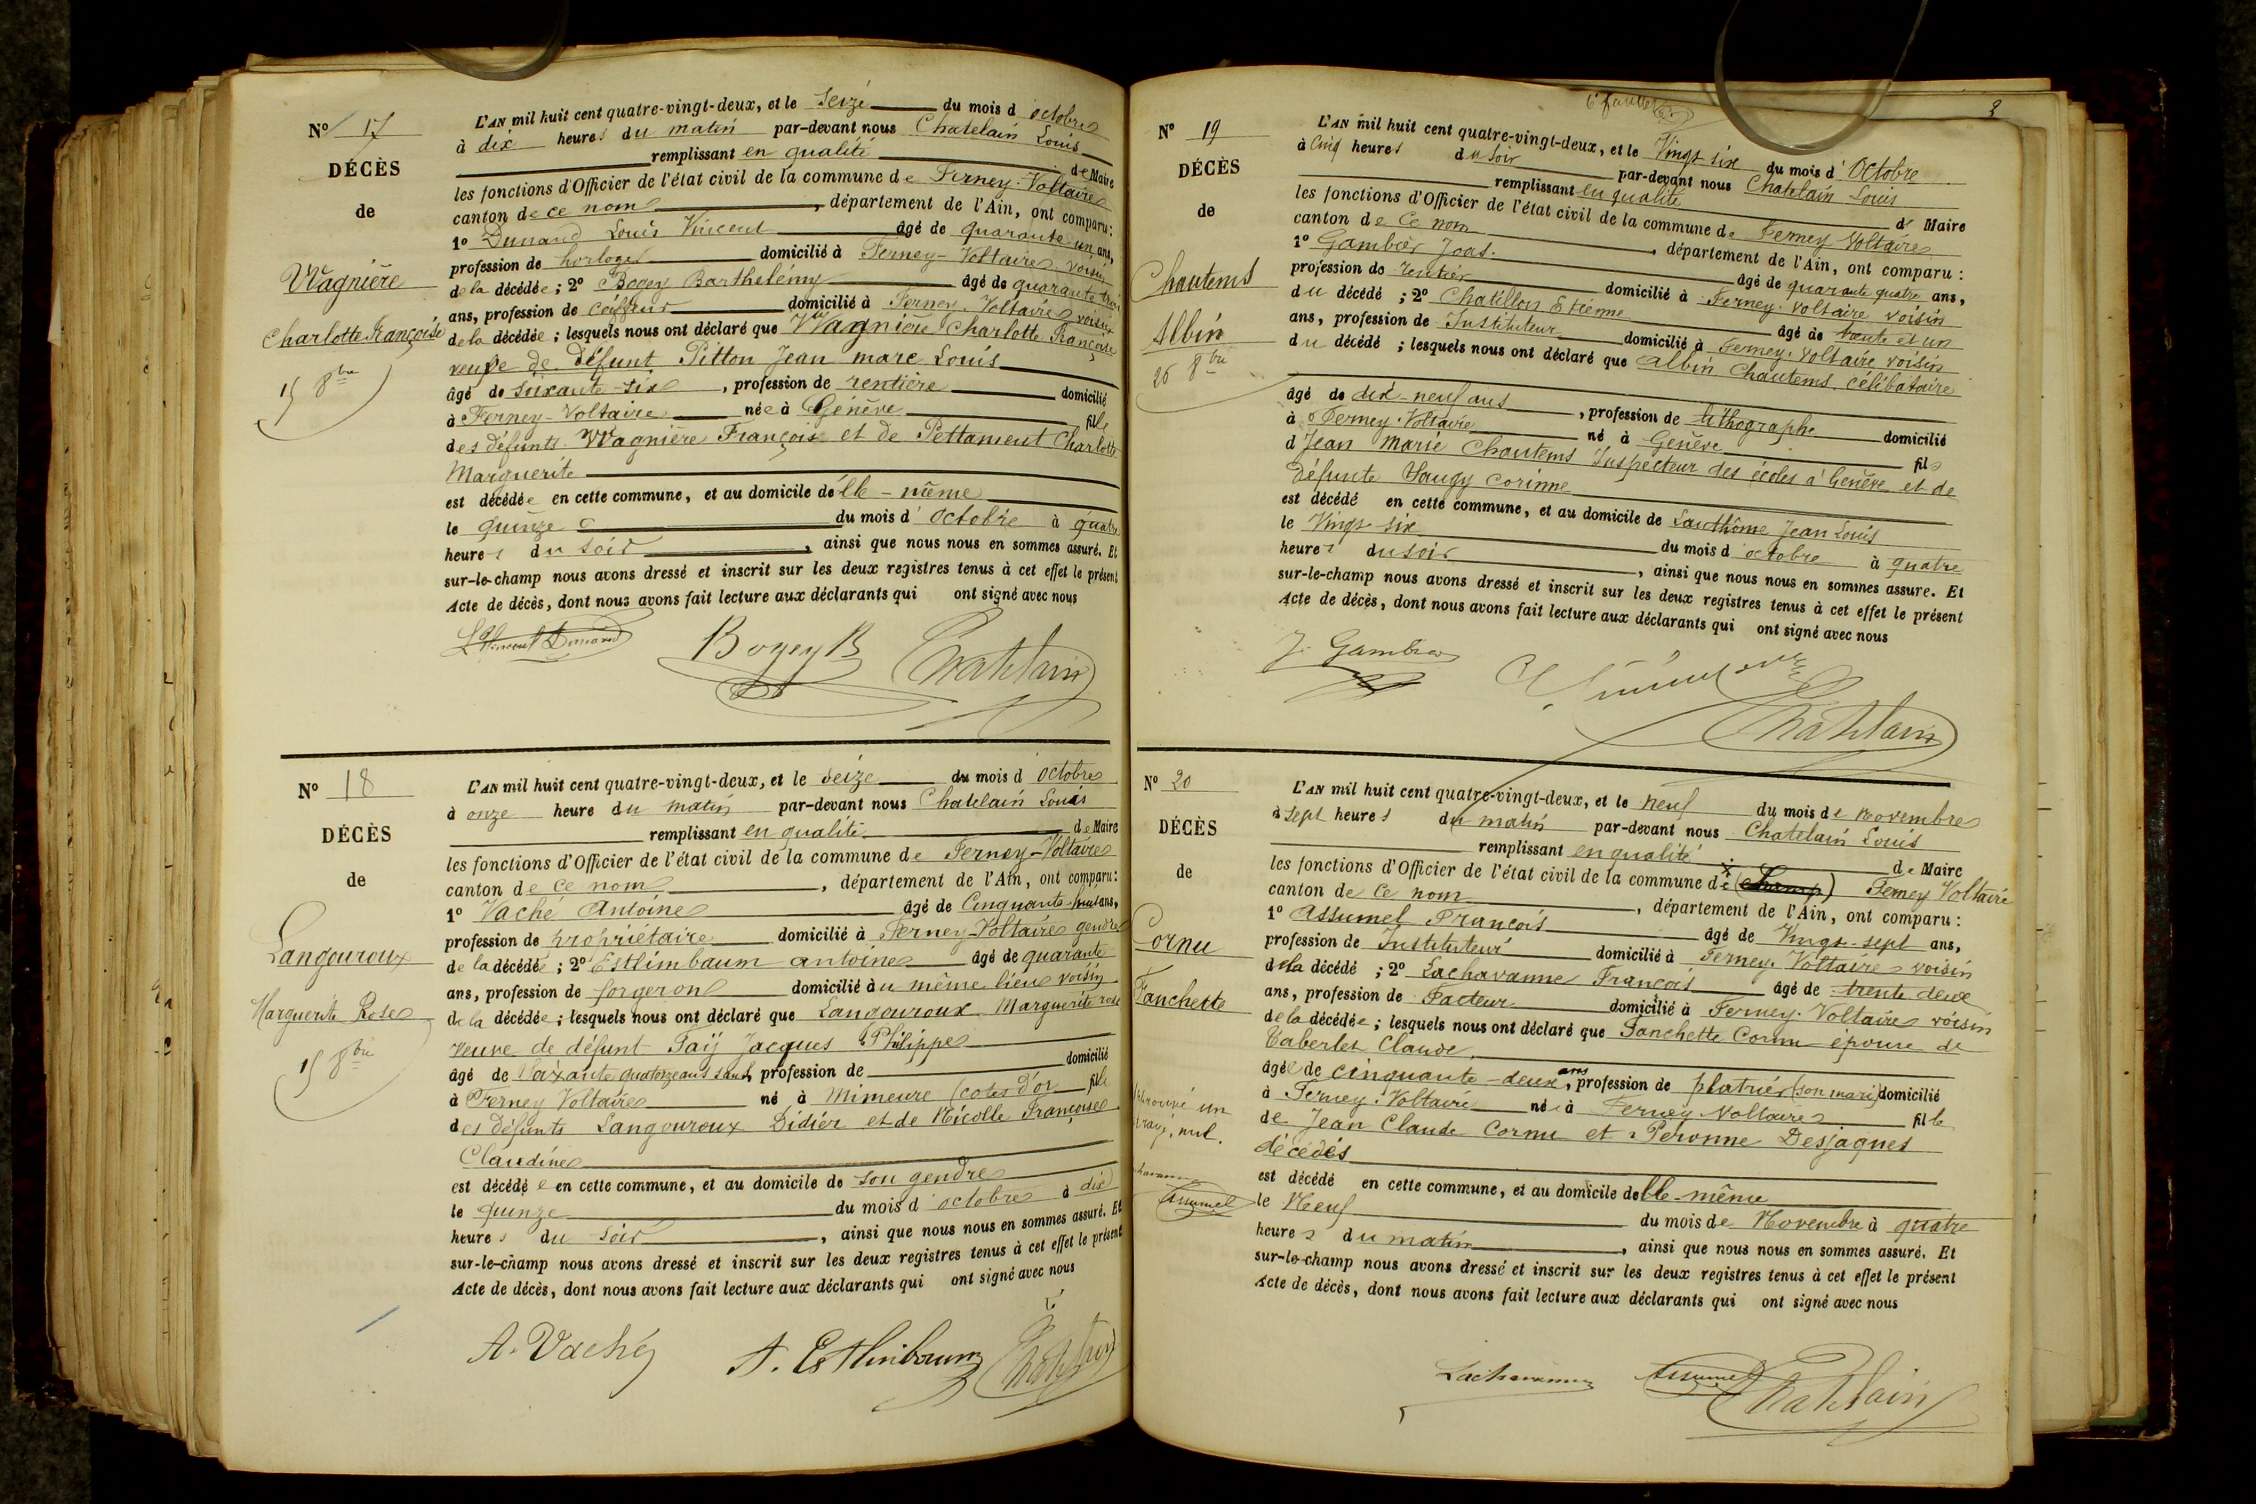 N° 17
DÉCÈS
de
Wagnière
Charlotte Françoise
15 8bre
L'AN mil huit cent quatre-vingt-deux, et le seize du mois d'octobre
à dix heures du matin par-devant nous Chatelain Louis
remplissant en qualité de Maire
les fonctions d'Officier de l'état civil de la commune de Ferney-Voltaire
canton de ce nom, département de l'Ain, ont comparu:
1° Dunand Louis Vincent âgé de quarante un ans,
profession de horloger domicilié à Ferney-Voltaire voisin
de la décédée; 2° Bogey Barthelémy âgé de quarante trois
ans, profession de coiffeur domicilié à Ferney-Voltaire voisin
de la décédée; lesquels nous ont déclaré que Wagnière Charlotte Françoise
veuve de défunt Pitton Jean marc Louis
âgé de soixante-six, profession de rentière domicilié
à Ferney-Voltaire née à Génève fille
des défunts Wagnière François et de Pettament Charlotte
Marguerite
est décédée en cette commune, et au domicile d'elle-même
le quinze du mois d'octobre à quatre
heures du soir, ainsi que nous nous en sommes assuré. Et
sur-le-champ nous avons dressé et inscrit sur les deux registres tenus à cet effet le présent
Acte de décès, dont nous avons fait lecture aux déclarants qui ont signé avec nous
Ls Vincent Dunand Bogey B Chatelain
N° 18
DÉCÈS
de
Langouroux
Marguerite Rose
15 8bre
L'AN mil huit cent quatre-vingt-deux, et le seize du mois d'octobre
à onze heure du matin par-devant nous Chatelain Louis
remplissant en qualité de Maire
les fonctions d'Officier de l'état civil de la commune de Ferney-Voltaire
canton de ce nom, département de l'Ain, ont comparu:
1° Vaché Antoine âgé de Cinquante-huit ans,
profession de propriétaire domicilié à Ferney-Voltaire gendre
de la décédée; 2° Esthimbaum antoine âgé de quarante
ans, profession de forgeron domicilié au même lieu voisin
de la décédée; lesquels nous ont déclaré que Langouroux Marguerite rose
veuve de défunt Faÿ Jacques Philippe
âgé de soixante quatorze ans sans, profession de domicilié
à Ferney Voltaire né à Mimeure (cotes d'or fille
des défunts Langouroux Didier et de Nicolle Françoise
Claudine
est décédée en cette commune, et au domicile de son gendre
le quinze du mois d'octobre à dix
heures du soir, ainsi que nous nous en sommes assuré. Et
sur-le-champ nous avons dressé et inscrit sur les deux registres tenus à cet effet le présent
Acte de décès, dont nous avons fait lecture aux déclarants qui ont signé avec nous
A. Vaché A. Esthimbaum Chatelain
N° 19
DÉCÈS
de
Chautems
Albin
26 8bre
L'AN mil huit cent quatre-vingt-deux, et le Vingt six du mois d'Octobre
à cinq heures du soir par-devant nous Chatelain Louis
remplissant en qualité de Maire
les fonctions d'Officier de l'état civil de la commune de Ferney Voltaire
canton de Ce nom, département de l'Ain, ont comparu:
1° Gambier Joas. âgé de quarante quatre ans,
profession de rentier domicilié à Ferney-Voltaire voisin
du décédé; 2° Chatillon Etienne âgé de trente et un
ans, profession de Instituteur domicilié à Ferney-Voltaire voisin
du décédé; lesquels nous ont déclaré que Albin Chautems, célibataire
âgé de dix-neuf ans, profession de lithographe domicilié
à Ferney-Voltaire né à Genève fils
d Jean Marie Chautems Inspecteur des écoles à Genève et de
défunte Saugy Corinne
est décédé en cette commune, et au domicile de Lauthôme Jean Louis
le Vingt-six du mois d'octobre à quatre
heures du soir, ainsi que nous nous en sommes assuré. Et
sur-le-champ nous avons dressé et inscrit sur les deux registres tenus à cet effet le présent
Acte de décès, dont nous avons fait lecture aux déclarants qui ont signé avec nous
J. Gambier Chatelain
N° 20
DÉCÈS
de
Cornu
Fanchette
L'AN mil huit cent quatre-vingt-deux, et le neuf du mois de novembre
à sept heures du matin par-devant nous Chatelain Louis
remplissant en qualité de Maire
les fonctions d'Officier de l'état civil de la commune de Ferney Voltaire
canton de Ce nom, département de l'Ain, ont comparu:
1° Assumel François âgé de Vingt-sept ans,
profession de Instituteur domicilié à Ferney-Voltaire voisin
de la décédé; 2° Lachavanne François âgé de trente deux
ans, profession de Facteur domicilié à Ferney-Voltaire voisin
de la décédée; lesquels nous ont déclaré que Fanchette Cornu épouse de
Taberlet Claude
âgée de cinquante-deux ans, profession de platrier (son mari) domicilié
à Ferney-Voltaire née à Ferney Voltaire fille
de Jean Claude Cornu et Péronne Desjaques
décédés
est décédé en cette commune, et au domicile d'elle-même
le Neuf du mois de Novembre à quatre
heures du matin, ainsi que nous nous en sommes assuré. Et
sur-le-champ nous avons dressé et inscrit sur les deux registres tenus à cet effet le présent
Acte de décès, dont nous avons fait lecture aux déclarants qui ont signé avec nous
Assumel
Lachavanne Assumel Chatelain